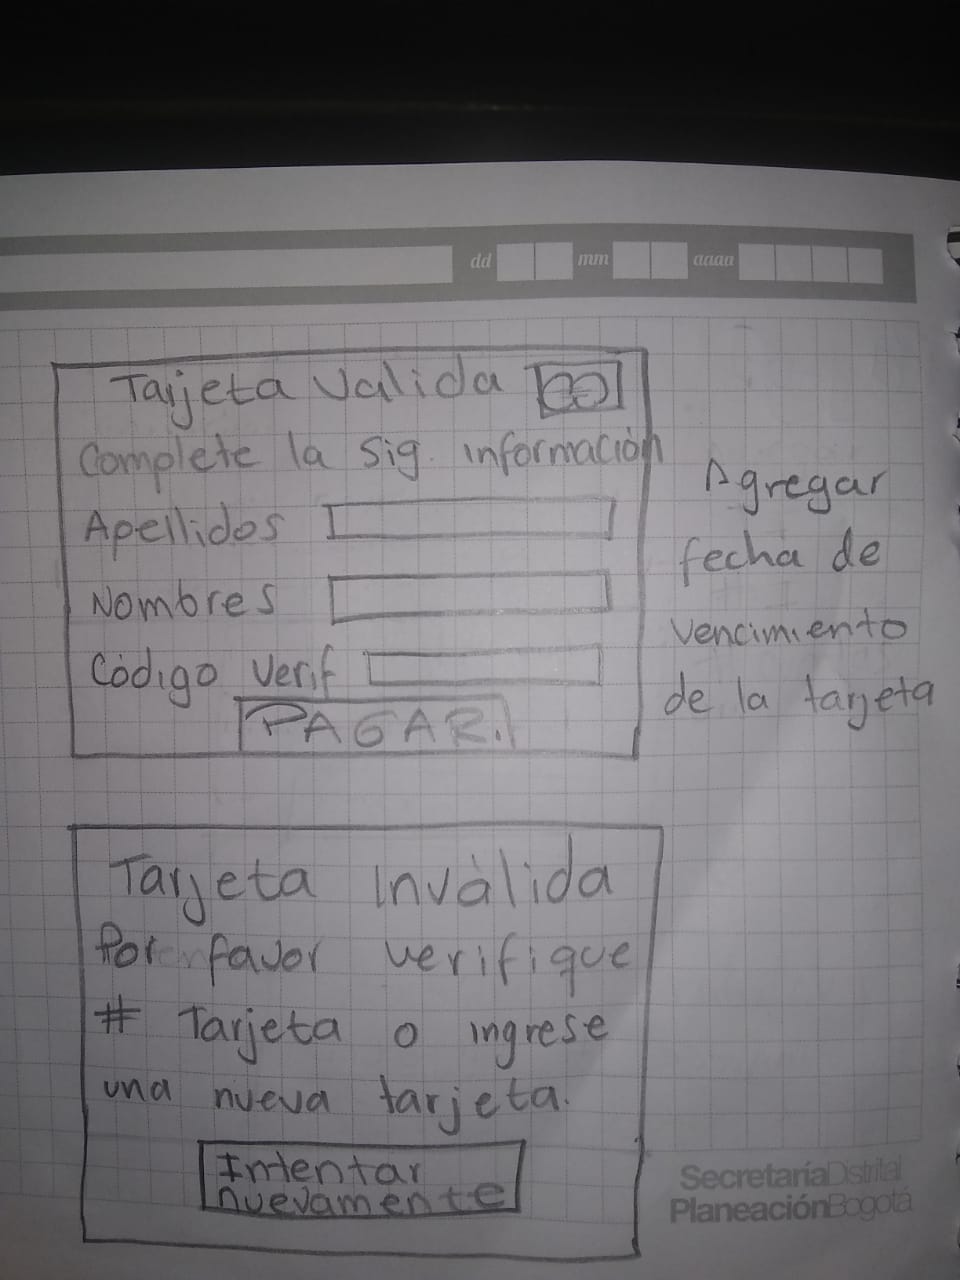 dd mm aaaa
Tarjeta Valida
Complete la sig. información
Apellidos
Nombres
Código Verif
PAGAR.
Agregar
fecha de
vencimiento
de la tarjeta
Tarjeta Inválida
Por favor verifique
# Tarjeta o ingrese
una nueva tarjeta.
Intentar
nuevamente
SecretaríaDistrital
PlaneaciónBogotá